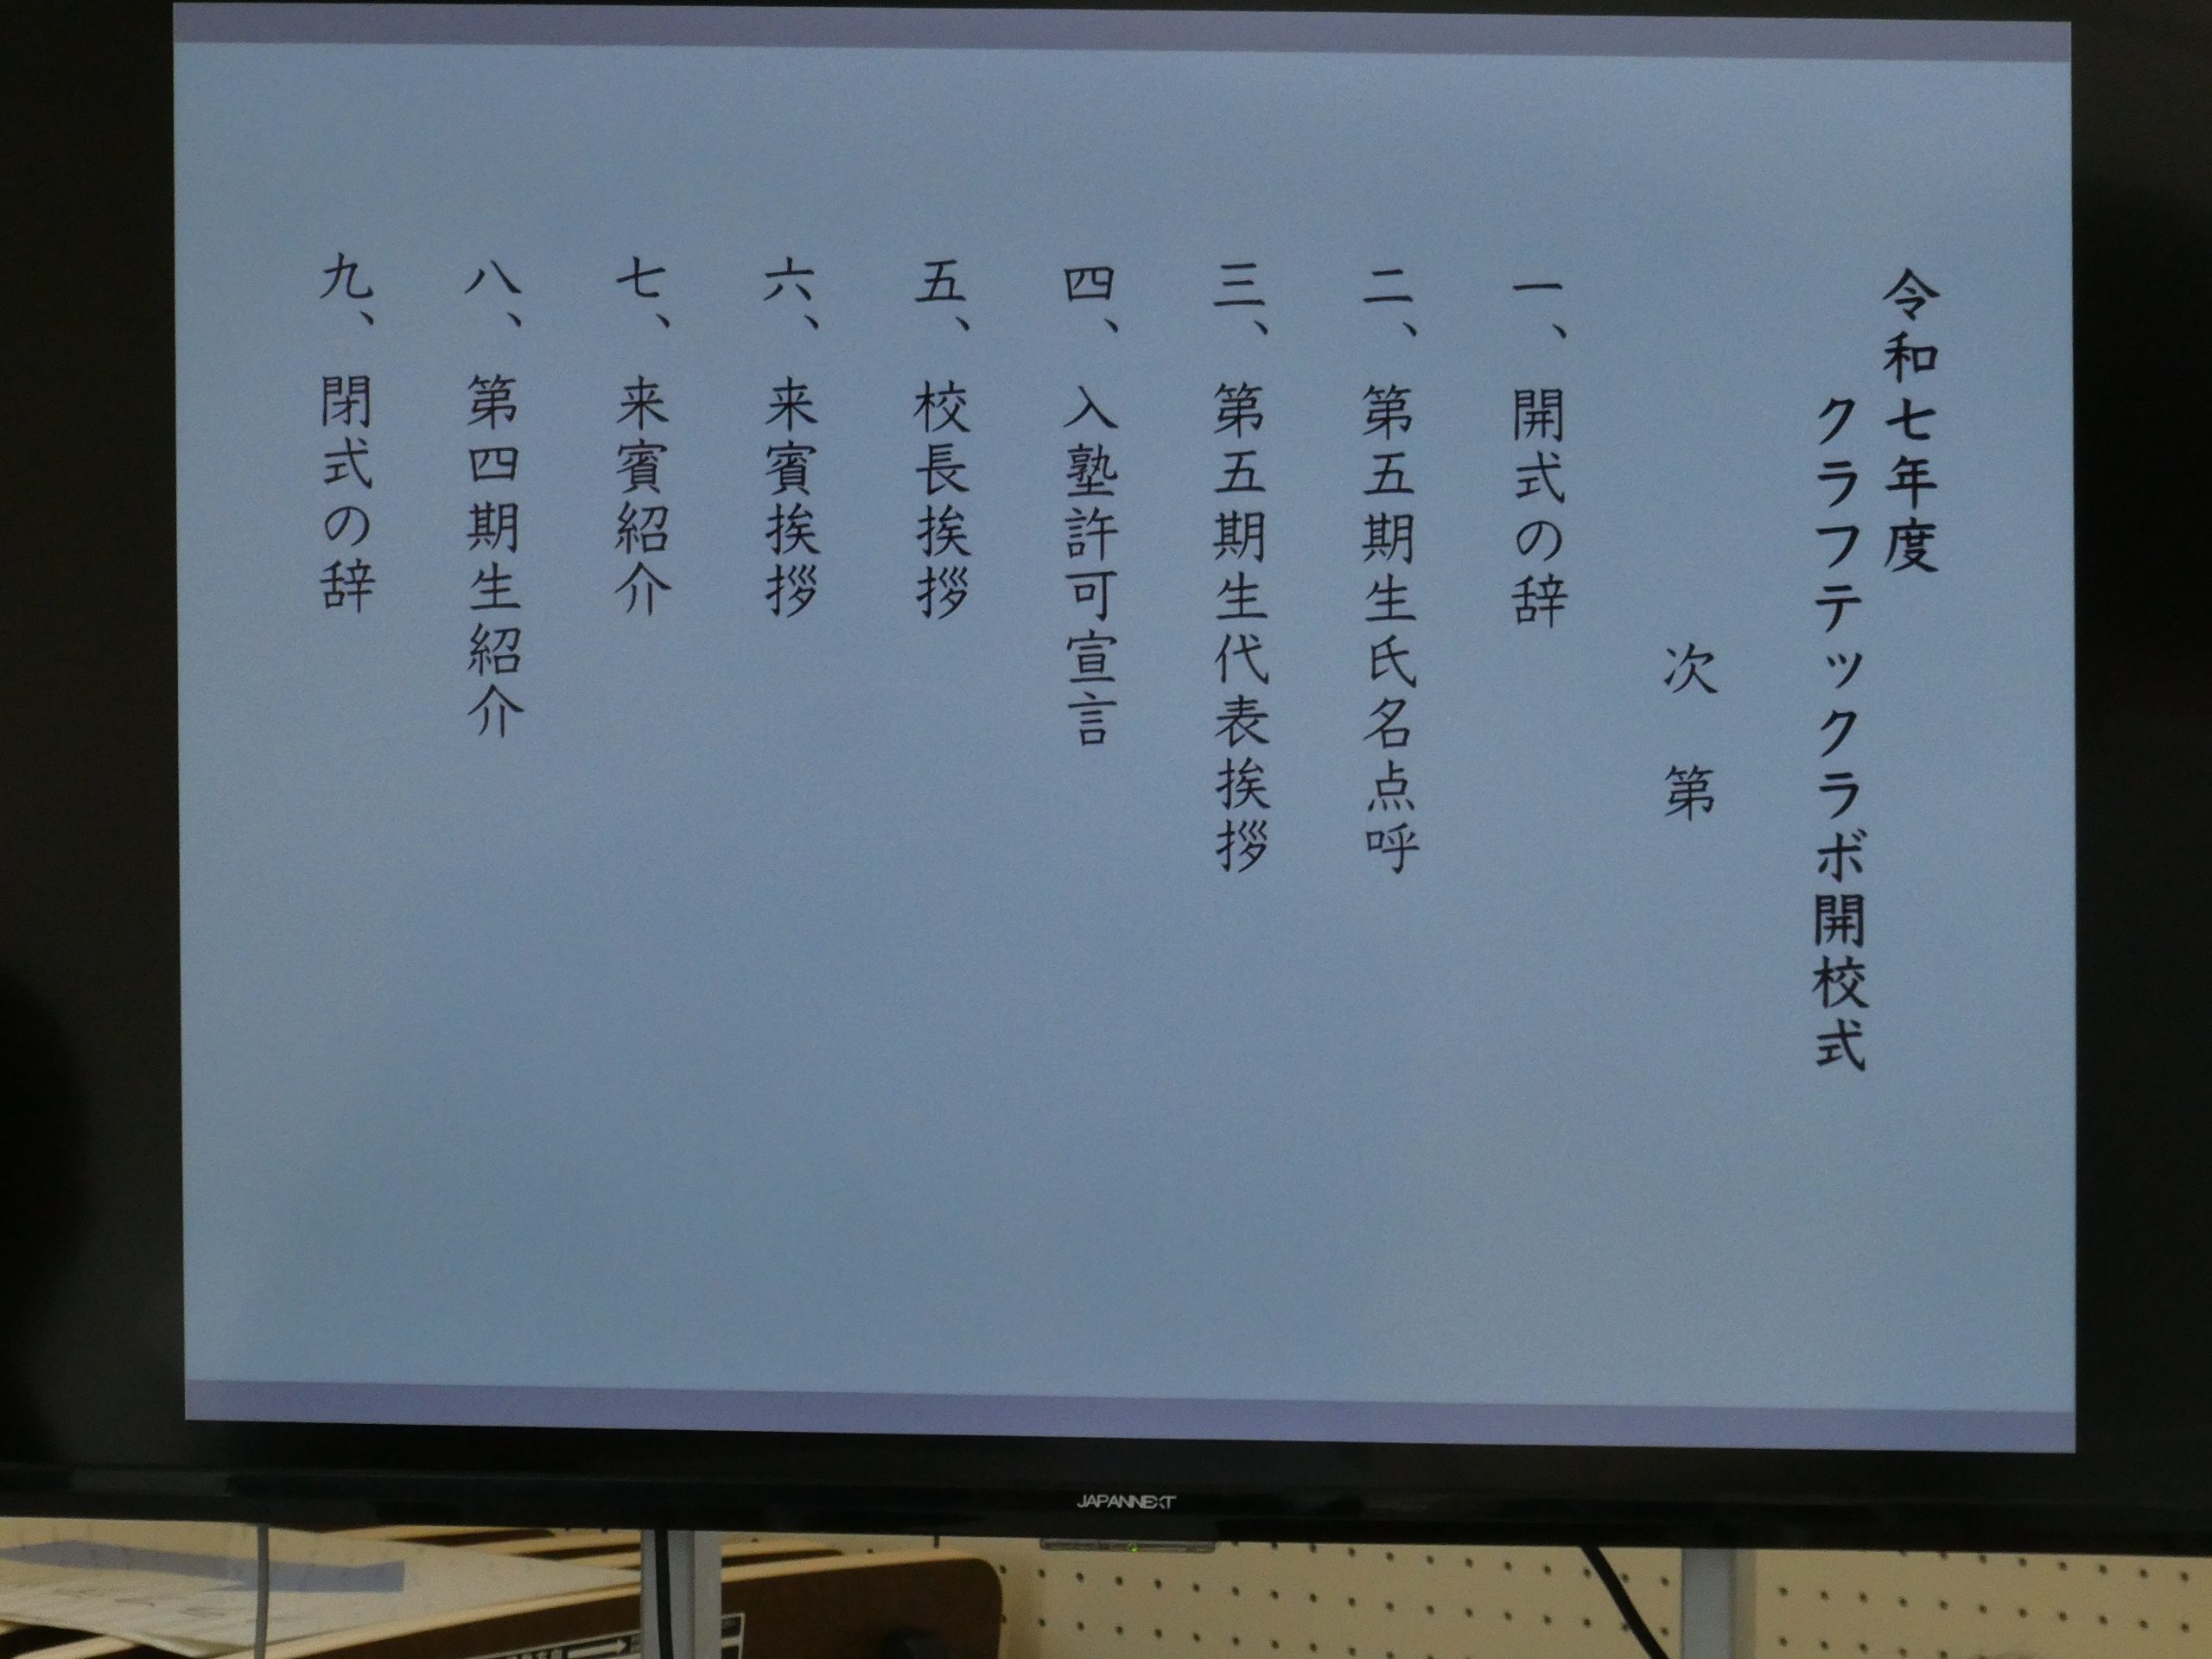 令和七年度
クラフテックラボ開校式
次 第
一、開式の辞
二、第五期生氏名点呼
三、第五期生代表挨拶
四、入塾許可宣言
五、校長挨拶
六、来賓挨拶
七、来賓紹介
八、第四期生紹介
九、閉式の辞
JAPANNEXT